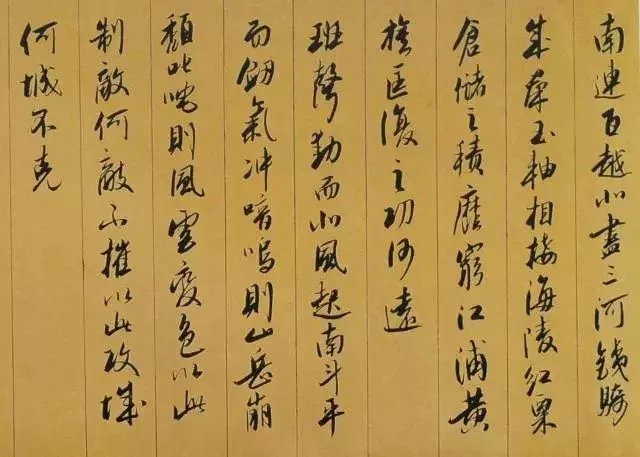 南連百越北盡三河鐵騎
成羣玉軸相接海陵紅粟
倉儲之積靡窮江浦黃
旗匡復之功何遠
班聲動而北風起南斗平
而劒氣冲喑嗚則山岳崩
頹叱咤則風雲變色以此
制敵何敵不摧以此攻城
何城不克